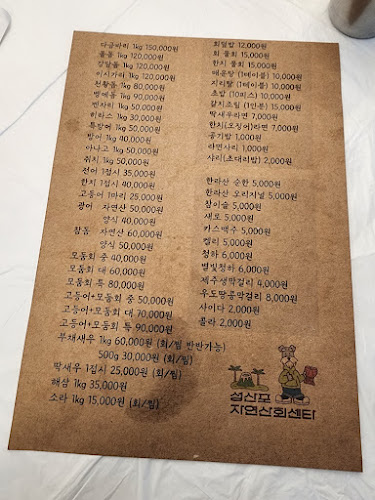 다금바리 1kg 150,000원
돌돔 1kg 120,000원
강담돔 1kg 120,000원
이시가리 1kg 120,000원
흑돔 1kg 80,000원
벵에돔 1kg 90,000원
벤자리 1kg 50,000원
히라스 1kg 30,000원
특방어 1kg 50,000원
방어 1kg 40,000원
아나고 1kg 50,000원
쥐치 1kg 50,000원
전어 1접시 35,000원
한치 1접시 40,000원
고등어 1마리 25,000원
광어 자연산 50,000원
양식 40,000원
참돔 자연산 60,000원
양식 50,000원
모둠회 중 40,000원
모둠회 대 60,000원
모둠회 특 80,000원
고등어+모둠회 중 50,000원
고등어+모둠회 대 70,000원
고등어+모둠회 특 90,000원
부채새우 1kg 60,000원 (회/찜 반반가능)
500g 30,000원 (회/찜)
딱새우 1접시 25,000원 (회/찜)
해삼 1kg 35,000원
소라 1kg 15,000원 (회/찜)
회덮밥 12,000원
회 물회 15,000원
한치 물회 15,000원
매운탕 (1테이블) 10,000원
지리탕 (1테이블) 10,000원
초밥 (10피스) 10,000원
갈치조림 (1인분) 15,000원
딱새우라면 7,000원
한치(오징어)라면 7,000원
공기밥 1,000원
라면사리 1,000원
샤리(초대리밥) 2,000원
한라산 순한 5,000원
한라산 오리지널 5,000원
참이슬 5,000원
새로 5,000원
카스맥주 5,000원
켈리 5,000원
청하 6,000원
별빛청하 6,000원
제주생막걸리 4,000원
우도땅콩막걸리 8,000원
사이다 2,000원
콜라 2,000원
섬산포
자연산회센타